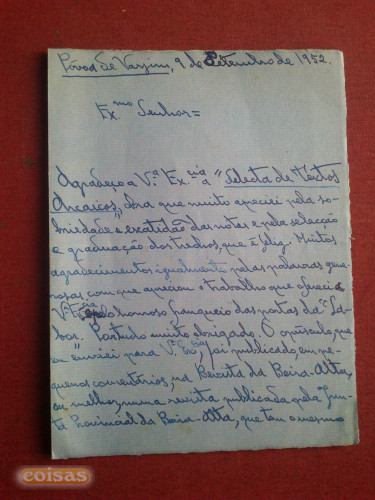 Póvoa de Varzim, 9 de Setembro de 1952.
Ex.mo Senhor =
Agradeço a V.ª Ex.cia a "Selecta de textos
Arcaicos", obra que muito apreciei pela so-
briedade e exatidão das notas e pela selecção
e graduação dos trechos, que é feliz. Muitos
agradecimentos igualmente pelas palavras gene-
rosas com que apreciou o trabalho que ofereci a
V.ª Ex.cia e pelo honroso franqueio das portas da "La-
bor". Portudo muito obrigado. O opúsculo, que
eu enviei para V.ª Ex.cia, foi publicado, em pe-
quenos comentários, na Revista da Beira-Alta,
ou melhor, numa revista publicada pela Jun-
ta Provincial da Beira-Alta, que tem o mesmo
coisas